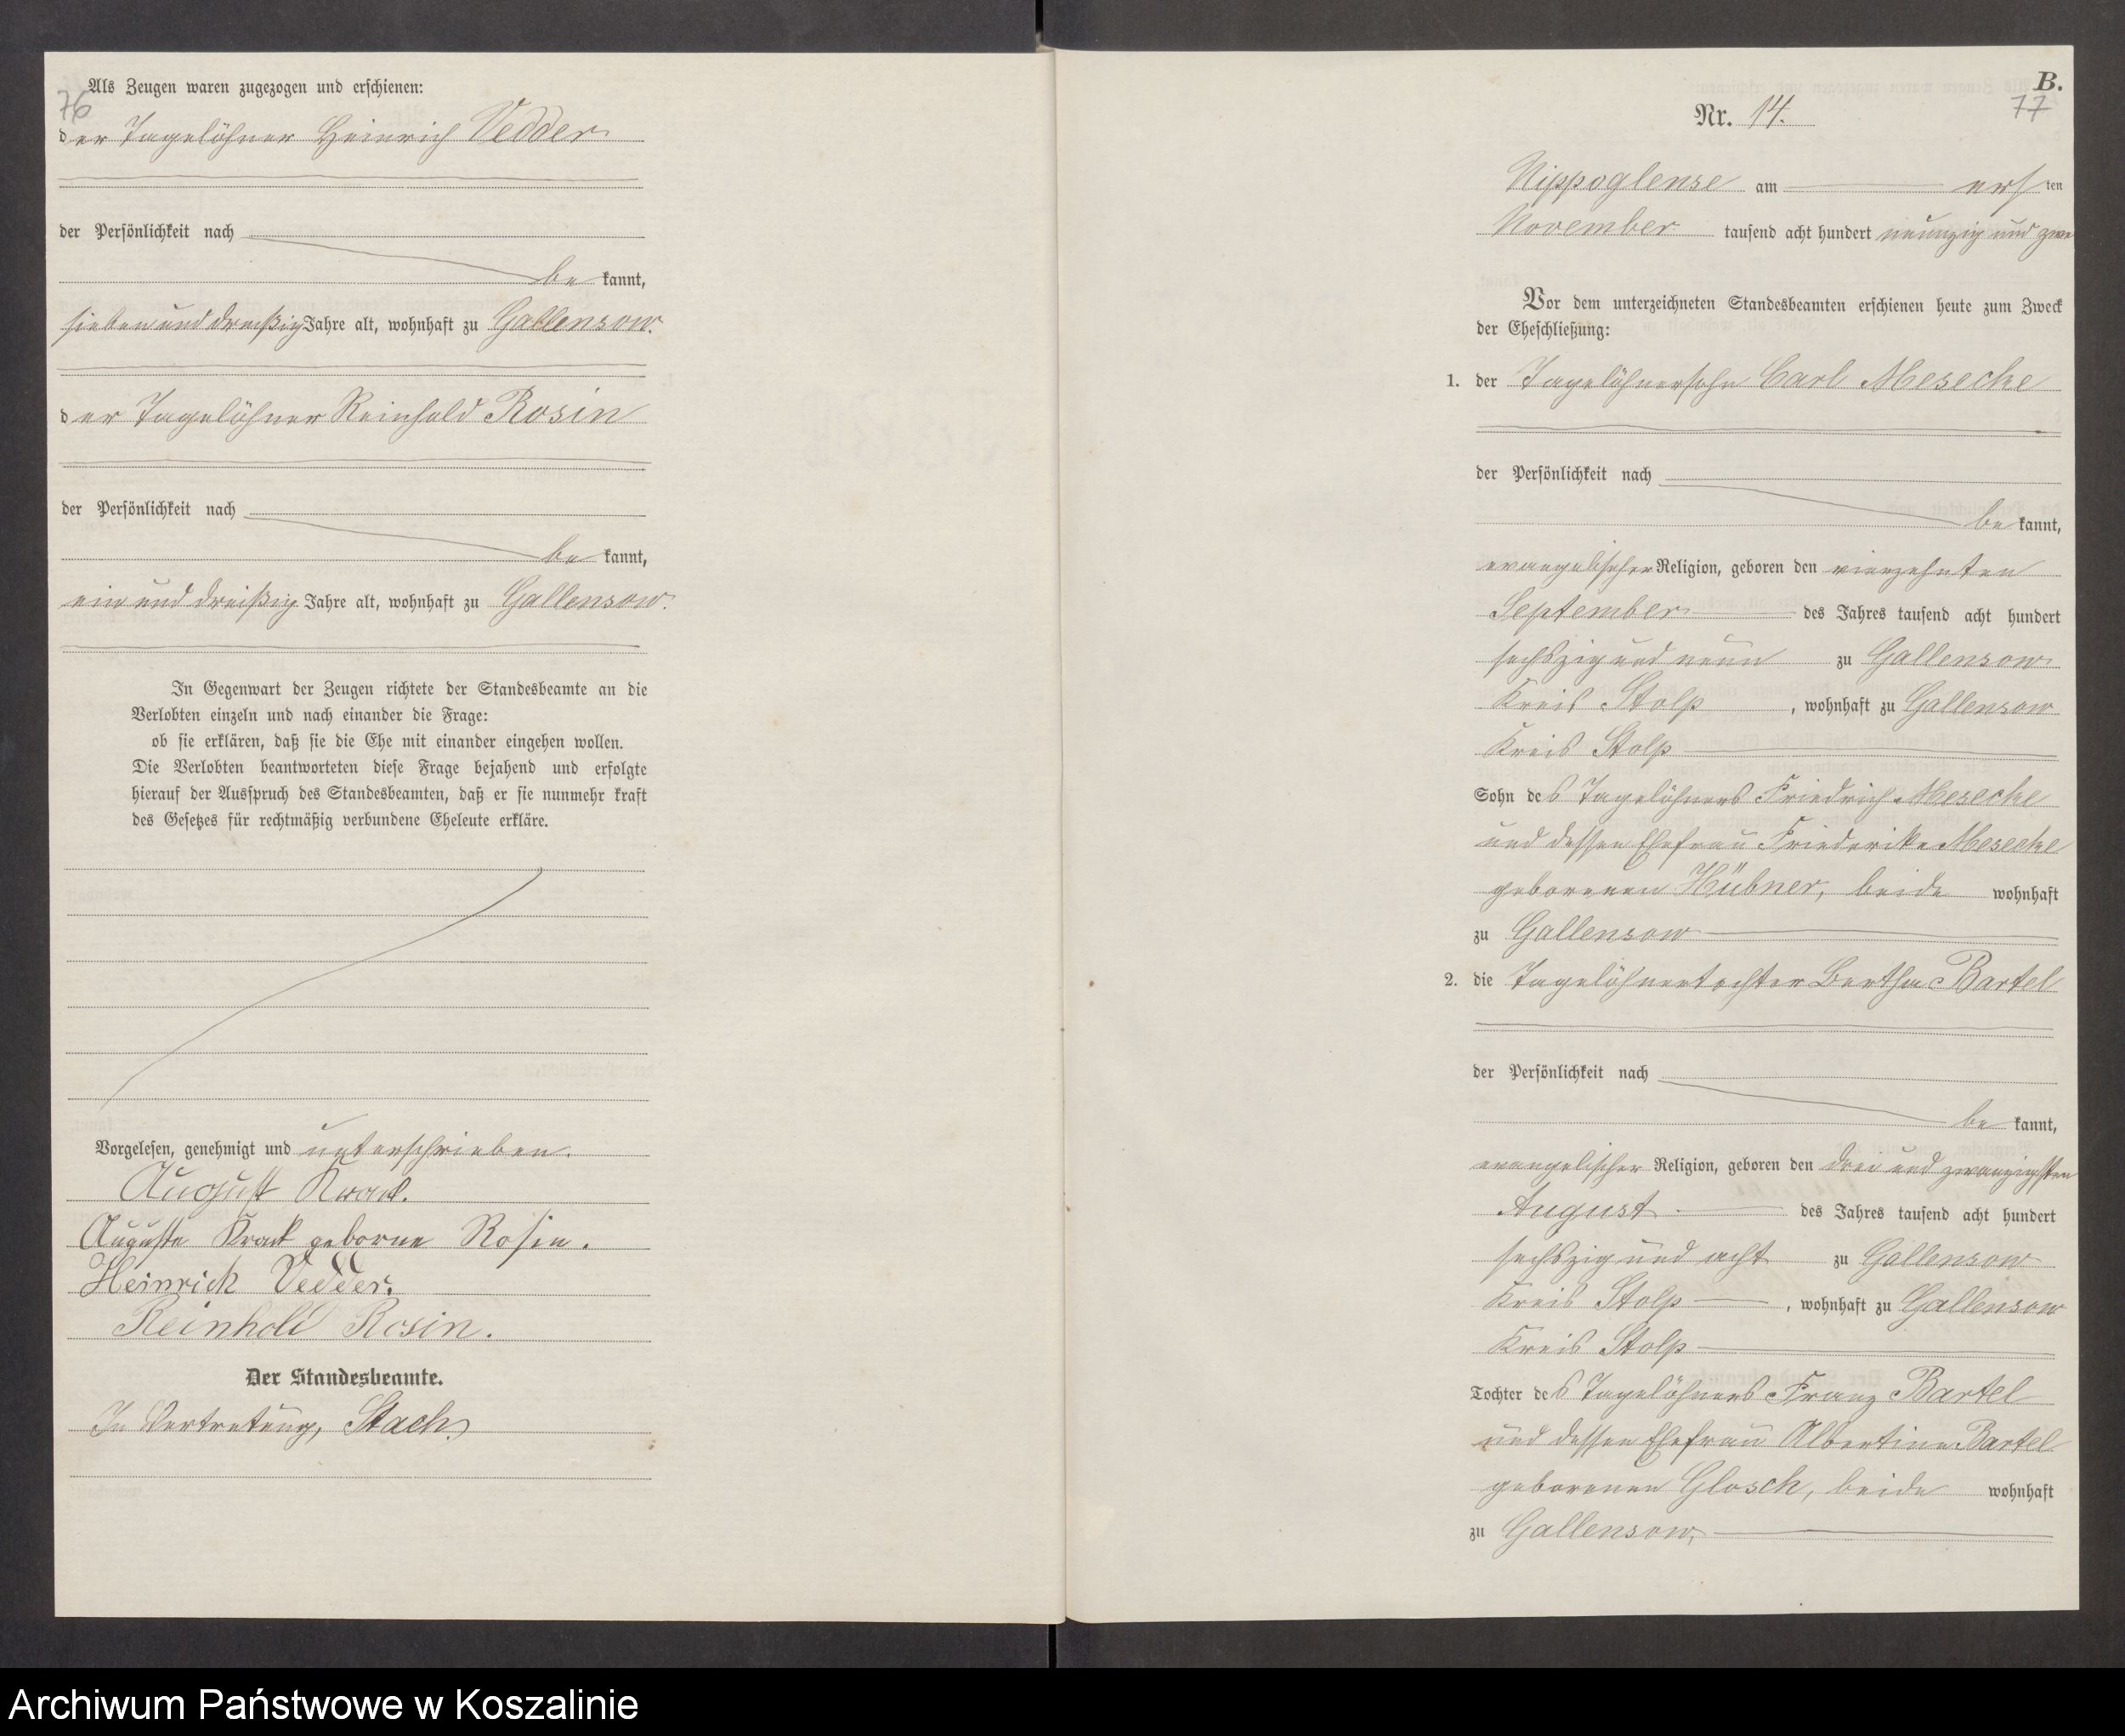 Als Zeugen waren zugezogen und erschienen:
76
der Tagelöhner Heinrich Vedder
der Persönlichkeit nach
be kannt,
sieben und dreißig Jahre alt, wohnhaft zu Gallensow.
der Tagelöhner Reinhold Rosin
der Persönlichkeit nach
be kannt,
ein und dreißig Jahre alt, wohnhaft zu Gallensow.
In Gegenwart der Zeugen richtete der Standesbeamte an die
Verlobten einzeln und nach einander die Frage:
ob sie erklären, daß sie die Ehe mit einander eingehen wollen.
Die Verlobten beantworteten diese Frage bejahend und erfolgte
hierauf der Ausspruch des Standesbeamten, daß er sie nunmehr kraft
des Gesetzes für rechtmäßig verbundene Eheleute erkläre.
Vorgelesen, genehmigt und unterschrieben.
August Krack.
Auguste Krack geborne Rosin.
Heinrich Vedder.
Reinhold Rosin.
Der Standesbeamte.
In Vertretung, Stach.
B.
77
Nr. 14.
Nippoglense am ersten
November tausend acht hundert neunzig und zwei
Vor dem unterzeichneten Standesbeamten erschienen heute zum Zweck
der Eheschließung:
1. der Tagelöhnersohn Carl Mesecke
der Persönlichkeit nach
be kannt,
evangelischer Religion, geboren den vierzehnten
September des Jahres tausend acht hundert
sechszig und neun zu Gallensow
Kreis Stolp, wohnhaft zu Gallensow
Kreis Stolp
Sohn des Tagelöhners Friedrich Mesecke
und dessen Ehefrau Friederike Mesecke
geborenen Hübner, beide wohnhaft
zu Gallensow
2. die Tagelöhnertochter Bertha Bartel
der Persönlichkeit nach
be kannt,
evangelischer Religion, geboren den drei und zwanzigsten
August des Jahres tausend acht hundert
sechszig und acht zu Gallensow
Kreis Stolp, wohnhaft zu Gallensow
Kreis Stolp
Tochter des Tagelöhners Franz Bartel
und dessen Ehefrau Albertine Bartel
geborenen Glosch, beide wohnhaft
zu Gallensow,
Archiwum Państwowe w Koszalinie